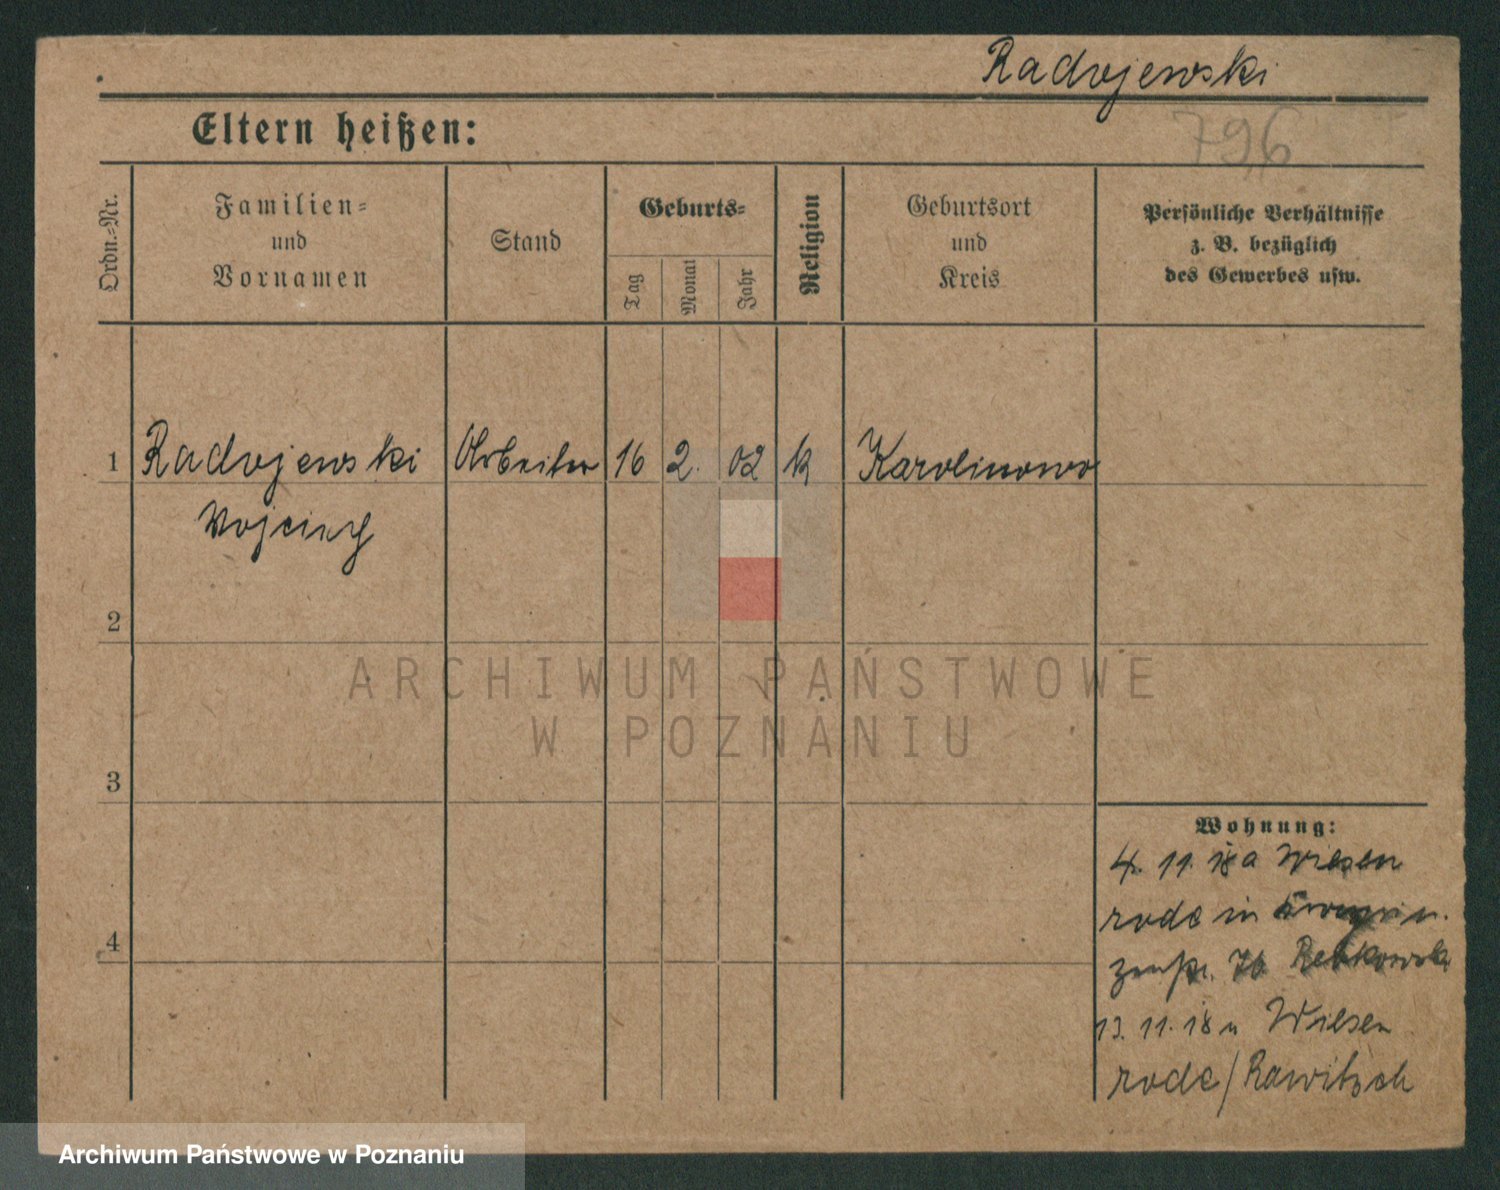 Radojewski
796
Eltern heißen:
Ordn.=Nr.
Familien=
und
Vornamen
Stand
Geburts=
Tag
Monat
Jahr
Religion
Geburtsort
und
Kreis
Persönliche Verhältnisse
z. B. bezüglich
des Gewerbes usw.
1 Radojewski Arbeiter 16 2. 02 k Karolinowo
Wojciech
2
3
4
ARCHIWUM PAŃSTWOWE
W POZNANIU
Wohnung:
4. 11. 18 a Wiesen
rode in
Rebkowsk
13. 11. 18 n Wiesen
rode/Rawitsch
Archiwum Państwowe w Poznaniu